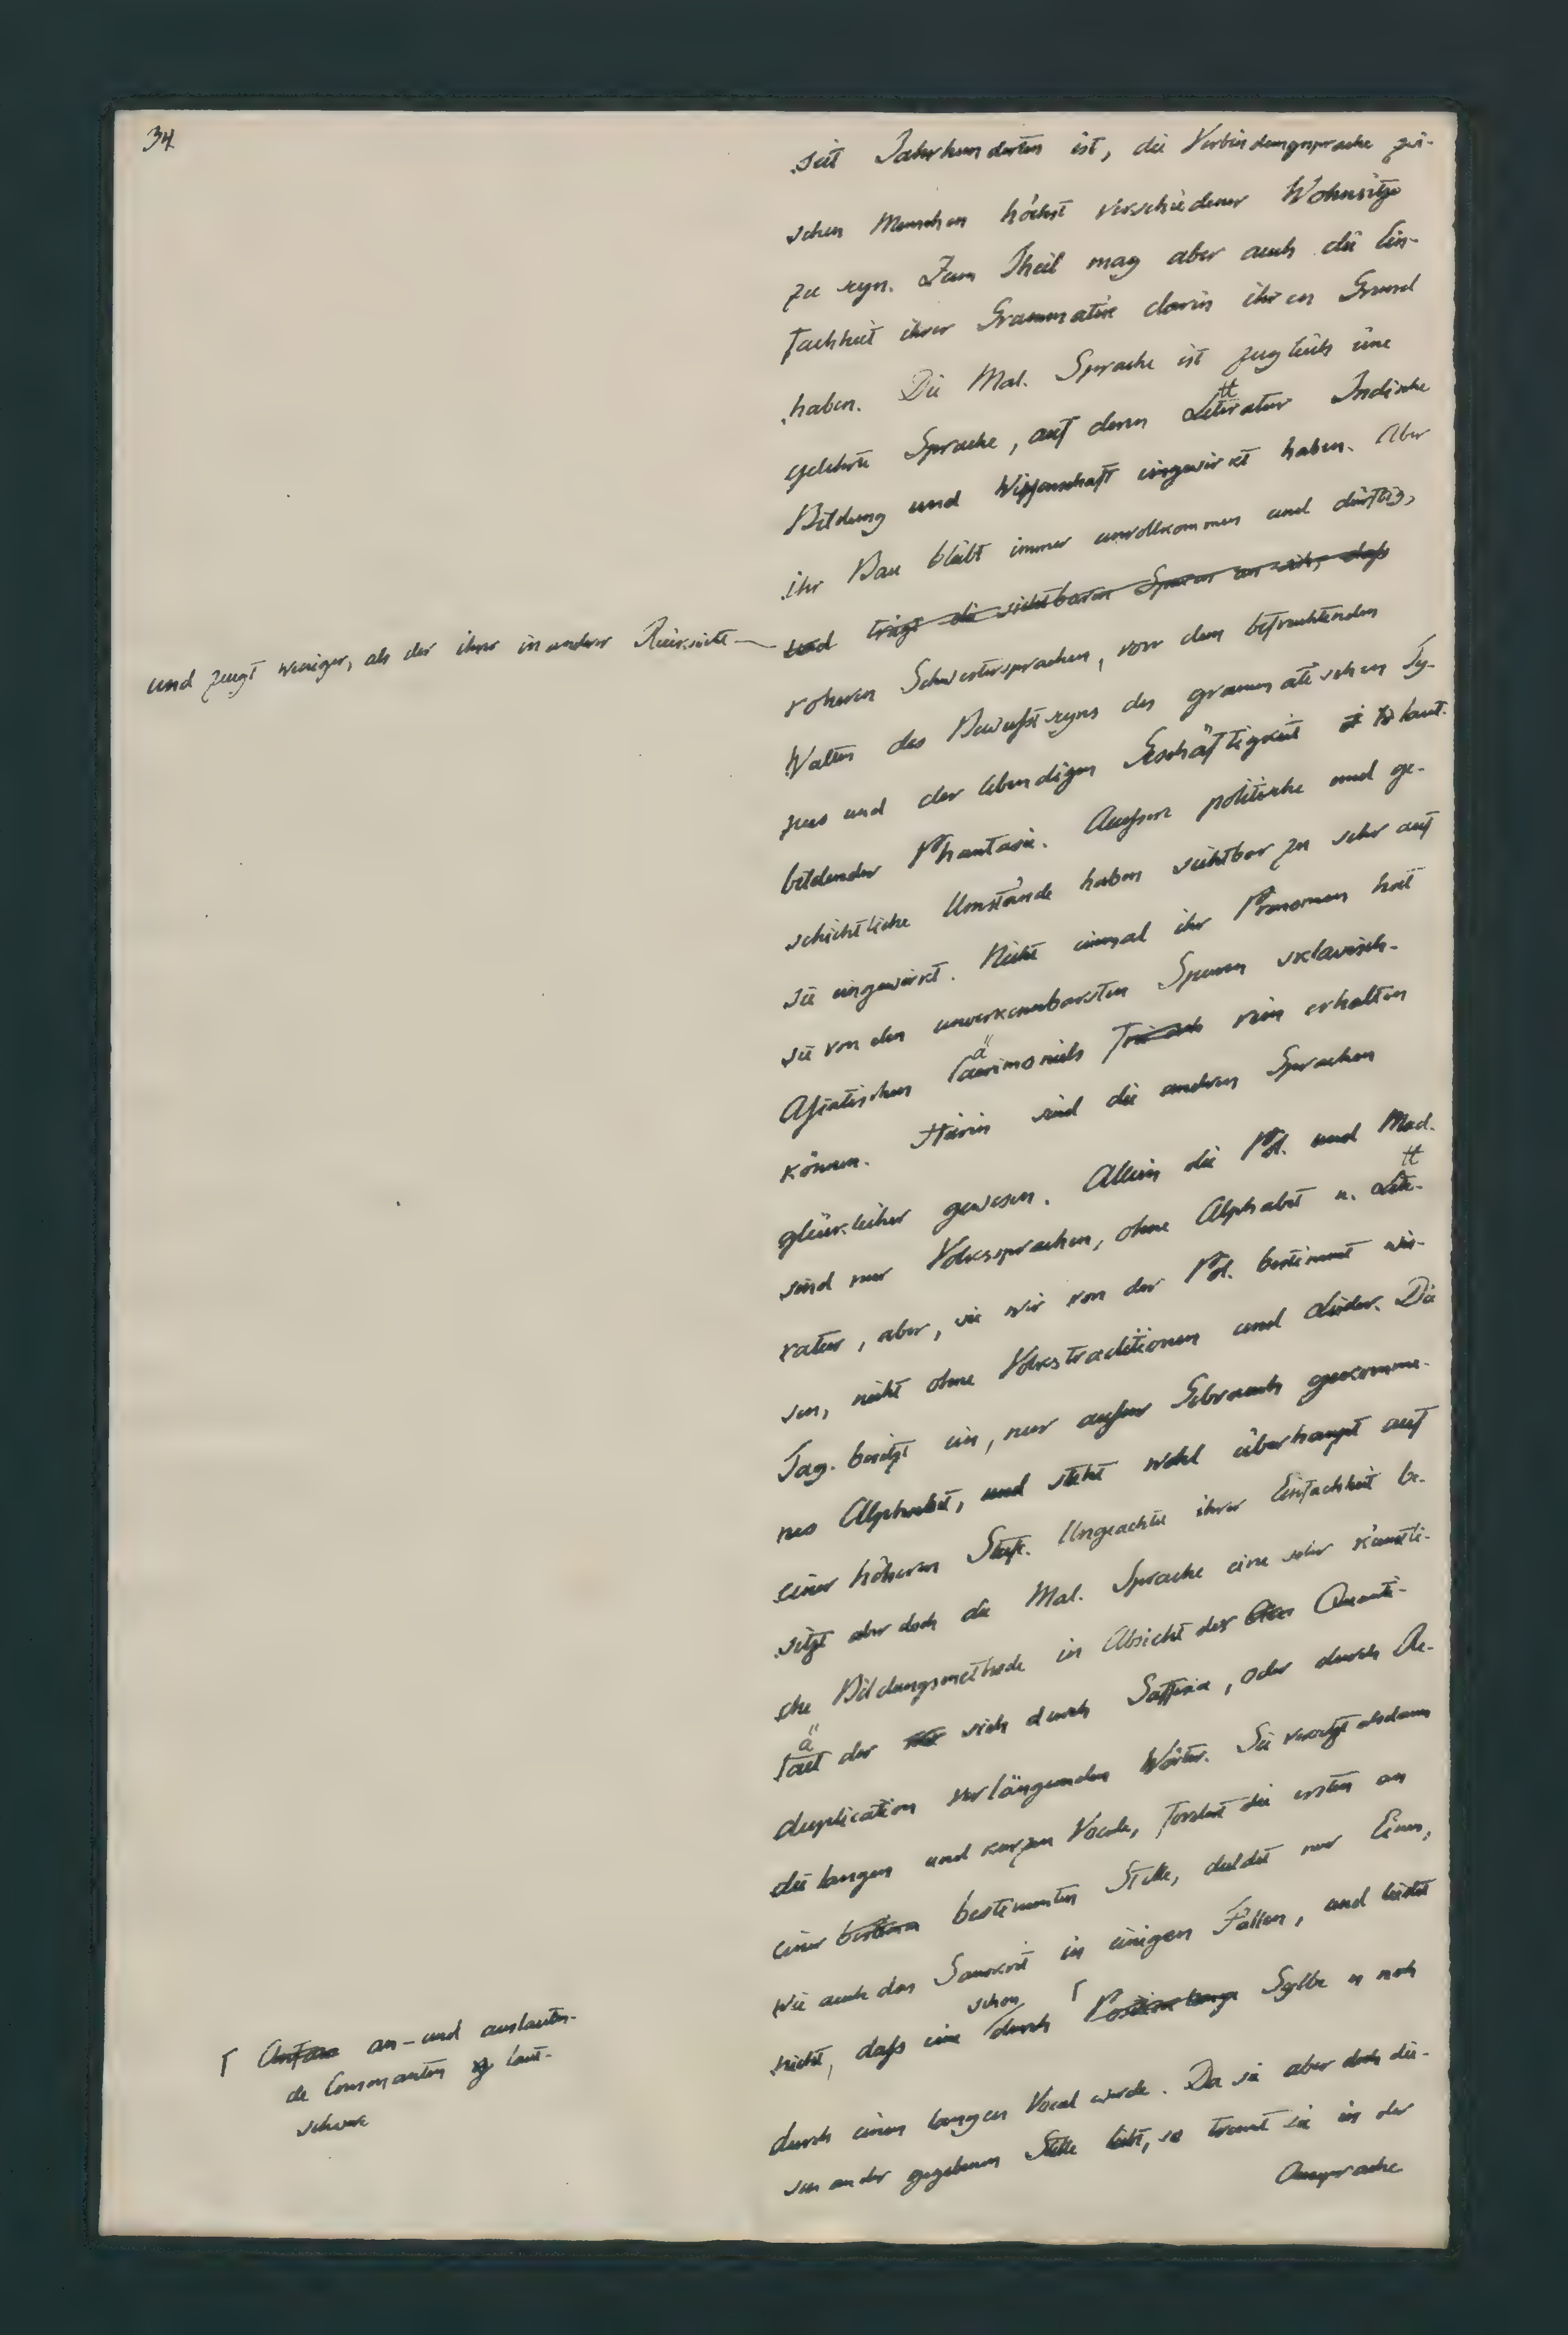 34
seit Jahrhunderten ist, die Verbindungssprache zwi-
schen Menschen höchst verschiedener Wohnsitze
zu seyn. Zum Theil mag aber auch die Ein-
fachheit ihrer Grammatik darin ihren Grund
haben. Die Mal. Sprache ist zugleich eine
gelehrte Sprache, auf deren Litteratur Indische
Bildung und Wissenschaft eingewirkt haben. Aber
ihr Bau bleibt immer unvollkommen und dürftig,
und trägt die sichtbaren Spuren an sich, daß
und zeugt weniger, als der ihrer in andrer Rücksicht
roheren Schwestersprachen, von dem befruchtenden
Walten des Bewußtseyns des grammatischen Ty-
pus und der lebendigen Geschäftigkeit laut-
bildender Phantasie. Aeußere politische und ge-
schichtliche Umstände haben sichtbar zu sehr auf
sie eingewirkt. Nicht einmal ihr Pronomen hat
sie von den unverkennbarsten Spuren sklavisch-
Asiatischen Cärimoniels rein erhalten
können. Hierin sind die andren Sprachen
glücklicher gewesen. Allein die Pol. und Mad.
sind nur Volkssprachen, ohne Alphabet u. Litte-
ratur, aber, wie wir von der Pol. bestimmt wis-
sen, nicht ohne Volkstraditionen und Lieder. Die
Tag. besitzt ein, nur außer Gebrauch gekomme-
nes Alphabet, und steht wohl überhaupt auf
einer höheren Stufe. Ungeachtet ihrer Einfachheit be-
sitzt aber doch die Mal. Sprache eine sehr künstli-
che Bildungsmethode in Absicht der Quanti-
tät der sich durch Suffixa, oder durch Re-
duplication verlängernden Wörter. Sie versetzt alsdann
die langen und kurzen Vocale, fordert die ersten an
einer bestimmten Stelle, duldet nur Einen,
wie auch das Sanskrit in einigen Fällen, und leidet
nicht, daß eine schon durch ⌈ Position lange Sylbe es noch
⌈ an- und auslauten-
de Consonanten laut-
schwere
durch einen langen Vocal werde. Da sie aber doch die-
sen an der gegebenen Stelle liebt, so trennt sie in der
Aussprache